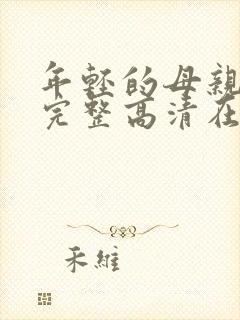 年轻的母亲
完整高清在
禾維